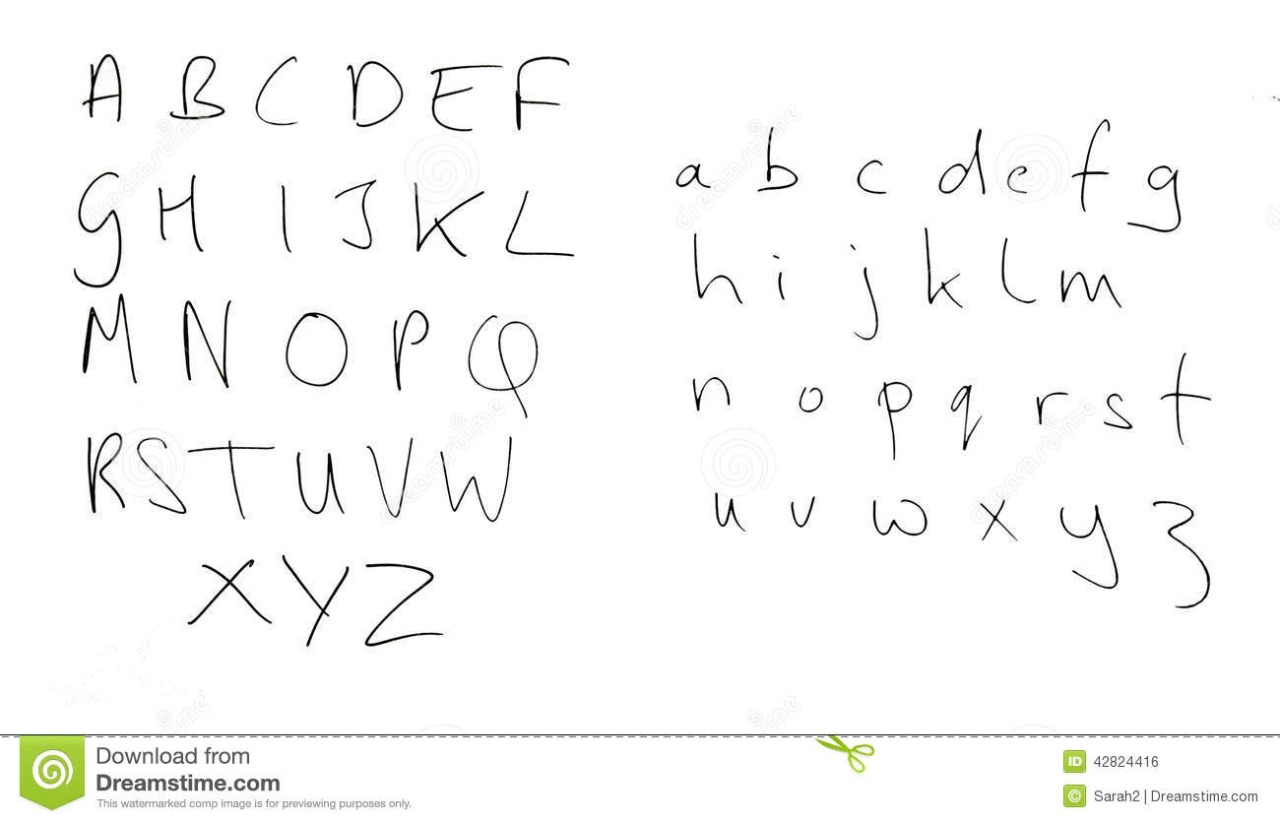 A B C D E F
G H I J K L
M N O P Q
R S T U V W
X Y Z
a b c d e f g
h i j k l m
n o p q r s t
u v w x y z
Download from
Dreamstime.com
This watermarked comp image is for previewing purposes only.
ID 42824416
© Sarah2 | Dreamstime.com